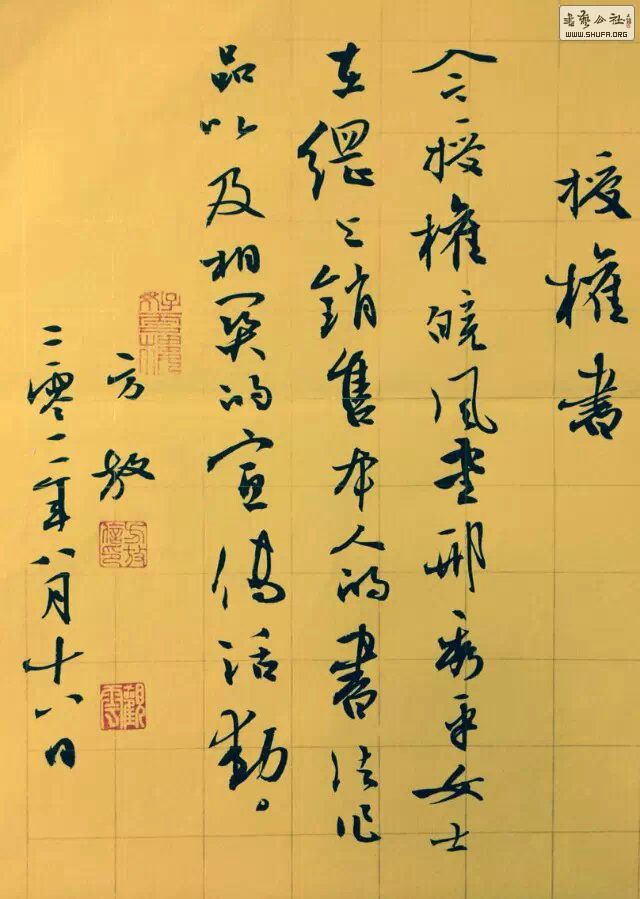 書藝公社
WWW.SHUFA.ORG
授權書
今授權皖風堂邢平女士
在網上銷售本人的書法作
品以及相関的宣傳活動。
方放
方放信印
二零一一年八月十八日